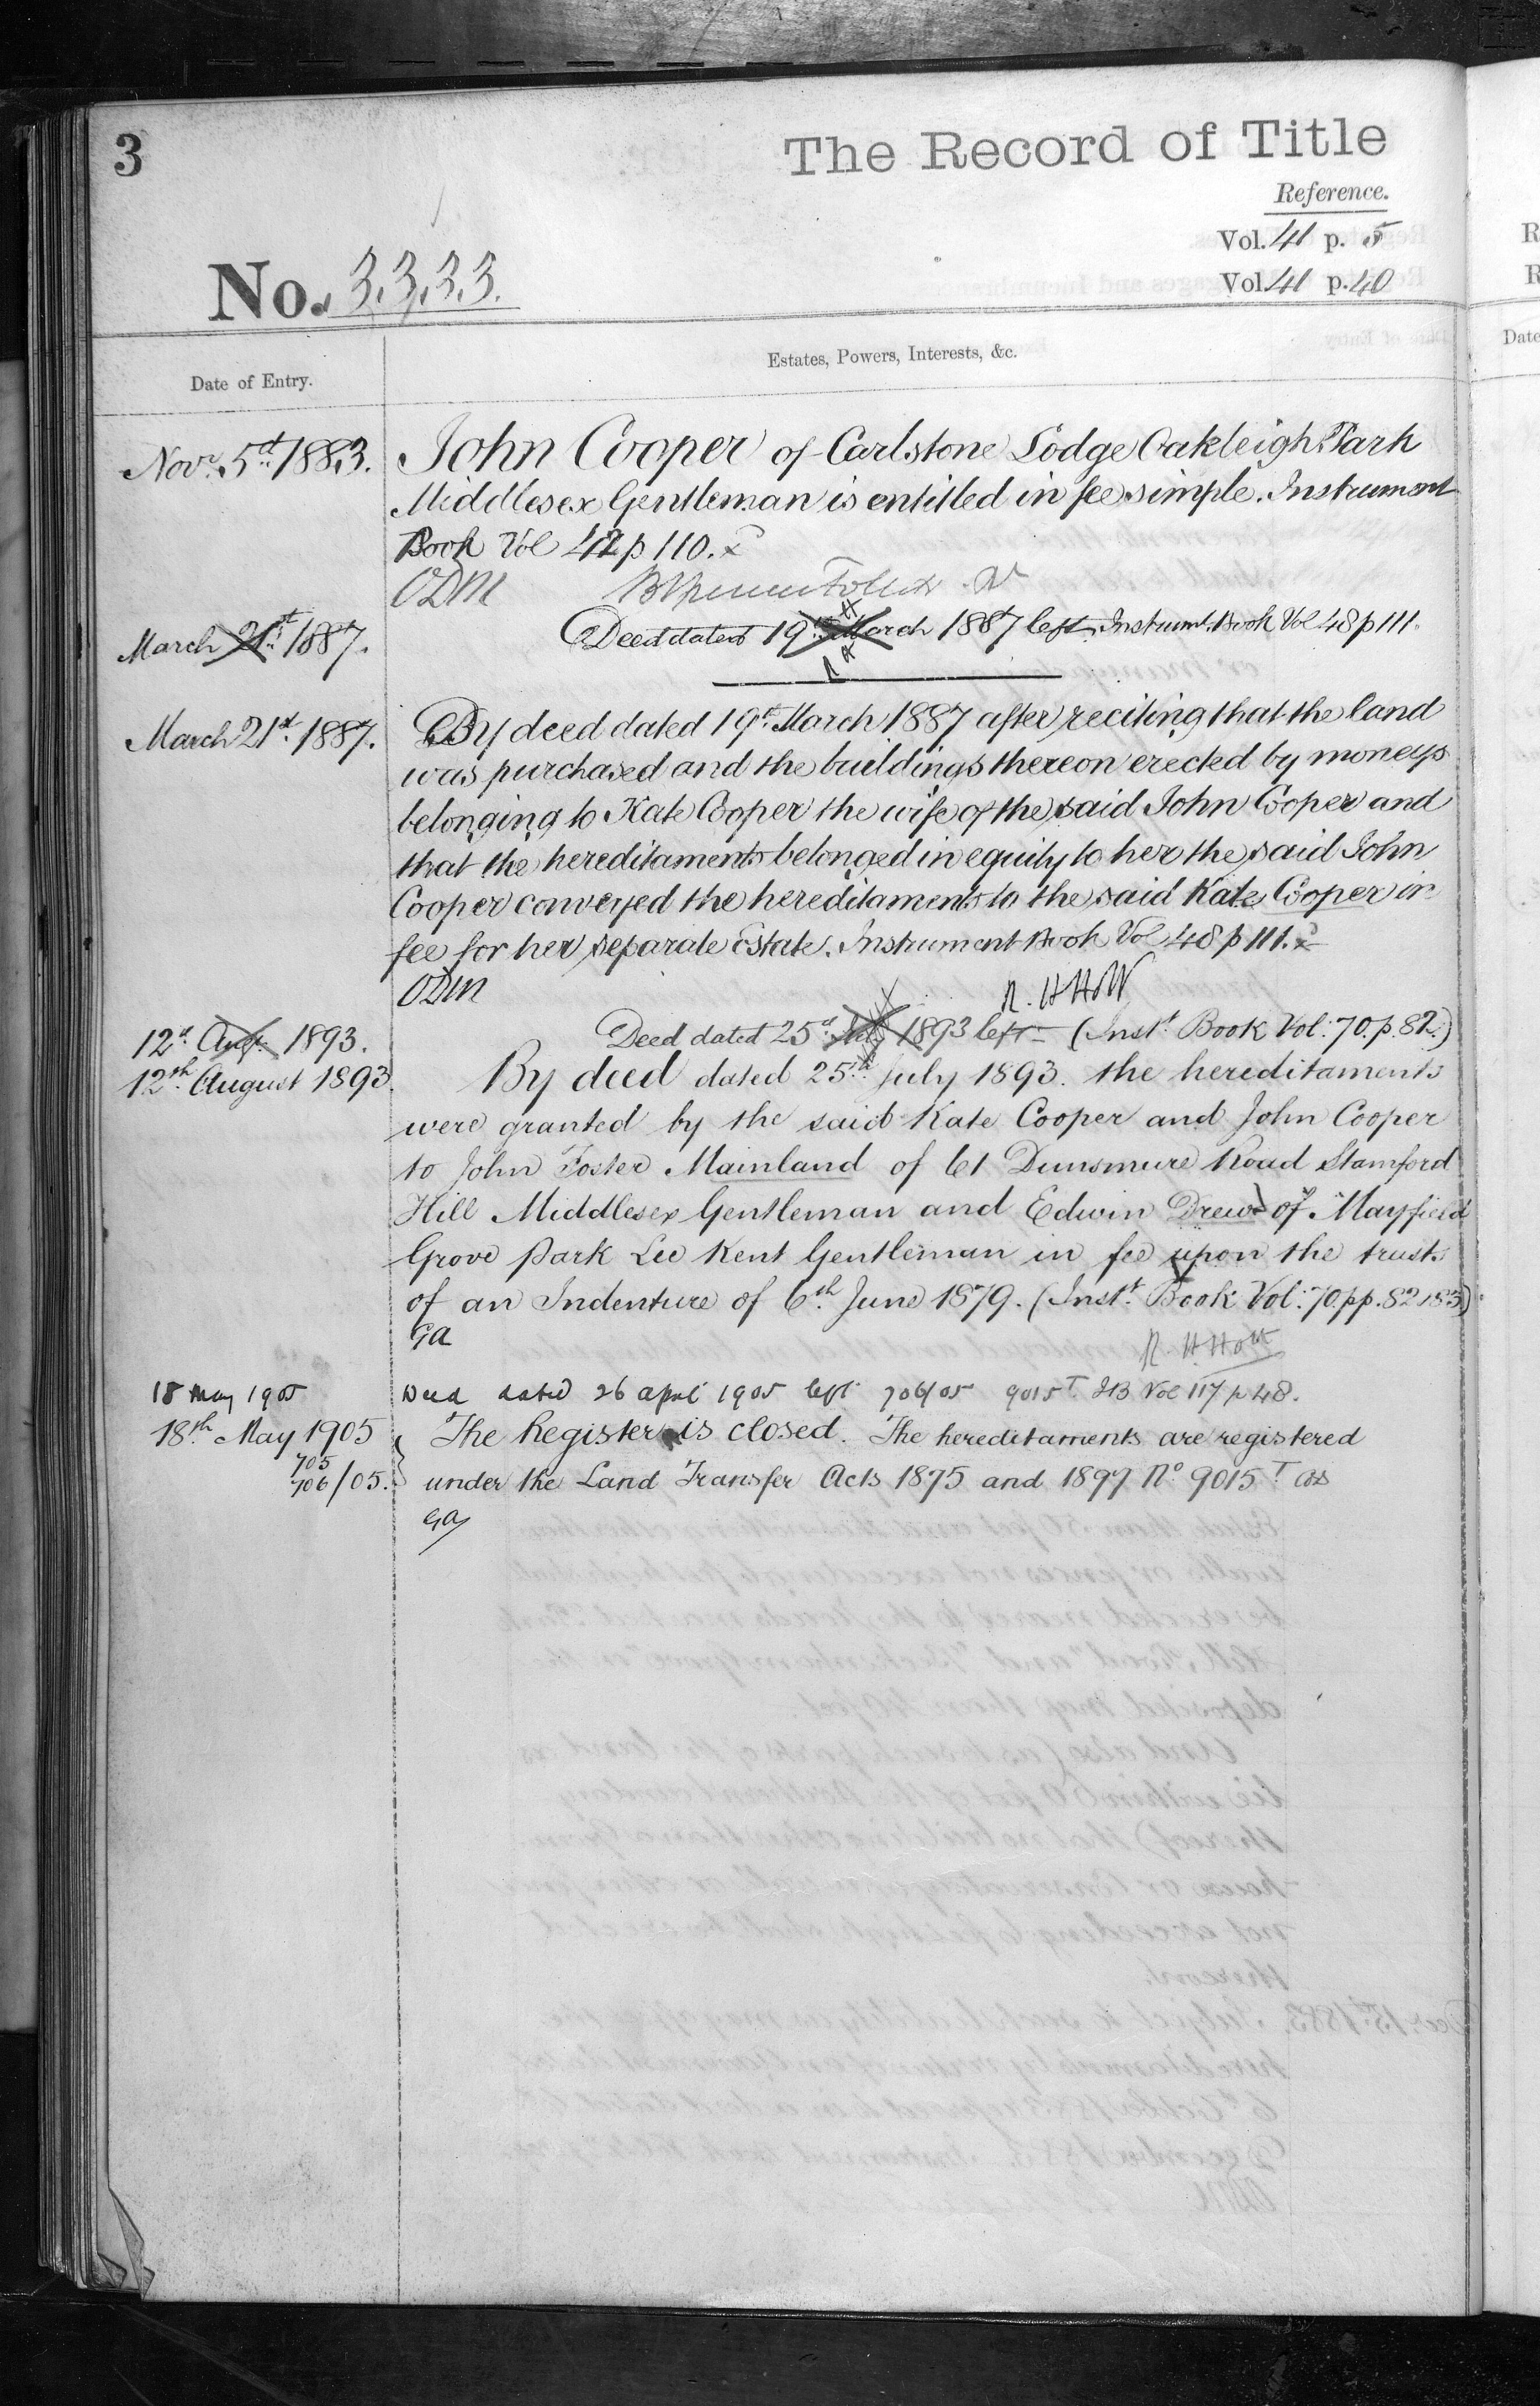 3
The Record of Title
Reference.
Vol. 41 p. 5
Vol. 41 p. 40
No. 3333.
Date of Entry.
Estates, Powers, Interests, &c.
Novr. 5th 1883. John Cooper of Carlstone Lodge Oakleigh Park
Middlesex Gentleman is entitled in fee simple. Instrument
Book Vol 42 p 110.
ODM
March 21st 1887. Deed dated 19th March 1887 left. Instrumt. Book Vol 48 p 111.
March 21st 1887. By deed dated 19th March 1887 after reciting that the land
was purchased and the buildings thereon erected by moneys
belonging to Kate Cooper the wife of the said John Cooper and
that the hereditaments belonged in equity to her the said John
Cooper conveyed the hereditaments to the said Kate Cooper in
fee for her separate Estate. Instrument Book Vol 48 p 111.
ODM R. H Holt
12th Aug. 1893. Deed dated 25th July 1893 left – (Instt. Book Vol: 70. p. 82.)
12th August 1893. By deed dated 25th July 1893. the hereditaments
were granted by the said Kate Cooper and John Cooper
to John Foster Mainland of 61 Dunsmure Road Stamford
Hill Middlesex Gentleman and Edwin Drew of Mayfield
Grove Park Lee Kent Gentleman in fee upon the trusts
of an Indenture of 6th June 1879. (Instt. Book Vol: 70. pp. 82 183)
GA
R. H. Holt
18 May 1905 Deed dated 26 April 1905 left 706/05 9015T IB Vol 117 p 48.
18th May 1905 The Register is closed. The hereditaments are registered
705
706/05. under the Land Transfer Acts 1875 and 1897 No 9015T
GA